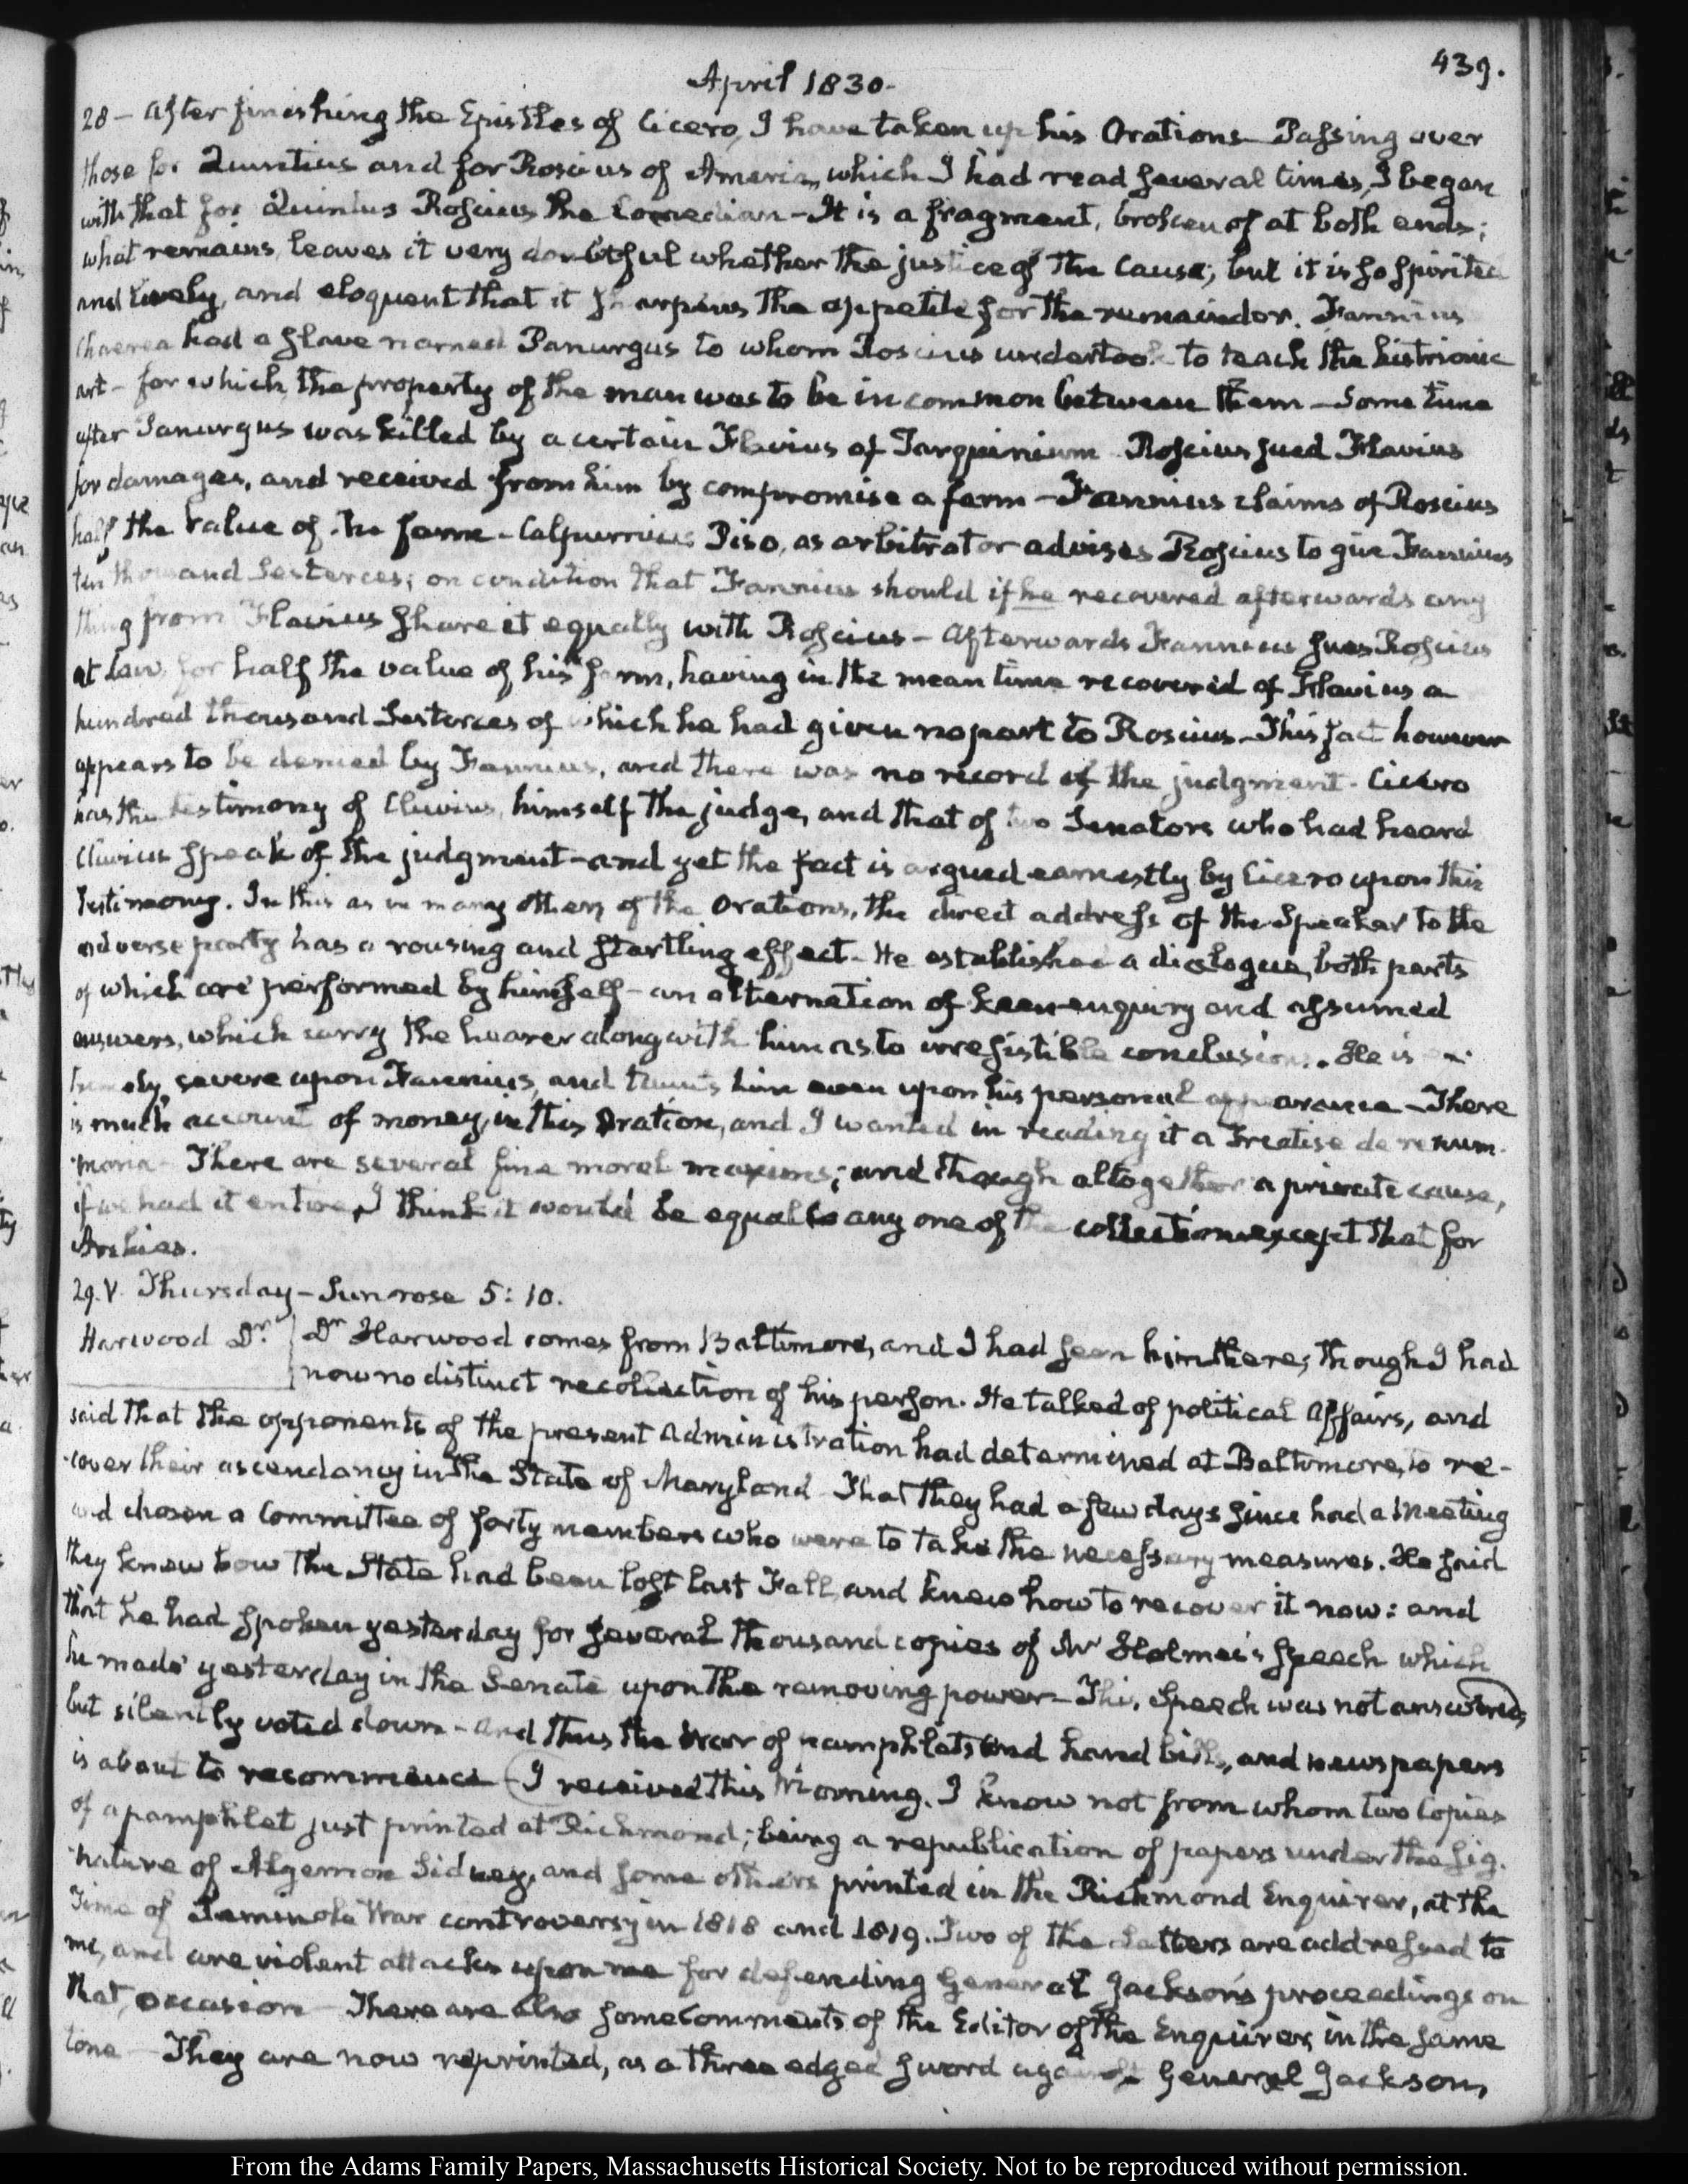 439.
April 1830.
28 - After finishing the Epistles of Cicero, I have taken up his Orations - Passing over
those for Quintius and for Roscius of Ameria, which I had read several times, I began
with that for Quintus Roscius the Comedian - It is a fragment, broken of at both ends;
what remains, leaves it very doubtful whether the justice of the cause; but it is so spirited
and lively, and eloquent that it sharpens the appetite for the remainder. Fannius
Chaerea had a slave named Panurgus to whom Roscius undertook to teach the histrionic
art - for which the property of the man was to be in common between them - Some time
after Panurgus was killed by a certain Flavius of Tarquinium Roscius sued Flavius
for damages, and received from him by compromise a farm - Fannius claims of Roscius
half the value of the farm - Calpurnius Piso, as arbitrator advises Roscius to give Fannius
ten thousand Sesterces; on condition that Fannius should if he recovered afterwards any
thing from Flavius share it equally with Roscius - Afterwards Fannius sues Roscius
at Law for half the value of his farm, having in the mean time recovered of Flavius a
hundred thousand Sesterces of which he had given no part to Roscius - This fact however
appears to be denied by Fannius, and there was no record of the judgment - Cicero
has the testimony of Cluvius, himself the judge, and that of two Senators who had heard
Cluvius speak of the judgment - and yet the fact is argued earnestly by Cicero upon this
Testimony. In this as in many others of the Orations, the direct address of the Speaker to the
adverse party has a rousing and startling effect - He established a dialogue, both parts
of which are performed by himself - an alternation of keen enquiry and assumed
answers, which carry the hearer along with him as to irresistible conclusions. He is ex-
tremely severe upon Fannius, and taunts him even upon his personal appearance - There
is much account of money, in this Oration, and I wanted in reading it a Treatise de re num-
maria - There are several fine moral maxims; and though altogether a private cause,
if we had it entire, I think it would be equal to any one of the collection except that for
Archias.
29. V. Thursday - Sun rose 5:10.
Harwood Dr. Dr Harwood comes from Baltimore, and I had seen him there; though I had
now no distinct recollection of his person. He talked of political Affairs, and
said that the opponents of the present Administration had determined at Baltimore, to re-
cover their ascendancy in the State of Maryland - That they had a few days since had a Meeting
and chosen a Committee of forty members who were to take the necessary measures. He said
they knew how the State had been lost last Fall, and knew how to recover it now: and
that he had spoken yesterday for several thousand copies of Mr Holmes's Speech which
he made yesterday in the Senate upon the removing power - This Speech was not answered,
but silently voted down - and thus the War of pamphlets and hand bills, and newspapers
is about to recommence - I received this Morning. I know not from whom two Copies
of a pamphlet just printed at Richmond; being a republication of papers under the sig-
nature of Algernon Sidney, and some others printed in the Richmond Enquirer, at the
Time of Seminole War controversy in 1818 and 1819. Two of the Letters are addressed to
me, and are violent attacks upon me for defending General Jackson's proceedings on
that occasion - There are also some Comments of the Editor of the Enquirer, in the same
tone - They are now reprinted, as a three edged sword against General Jackson,
From the Adams Family Papers, Massachusetts Historical Society. Not to be reproduced without permission.